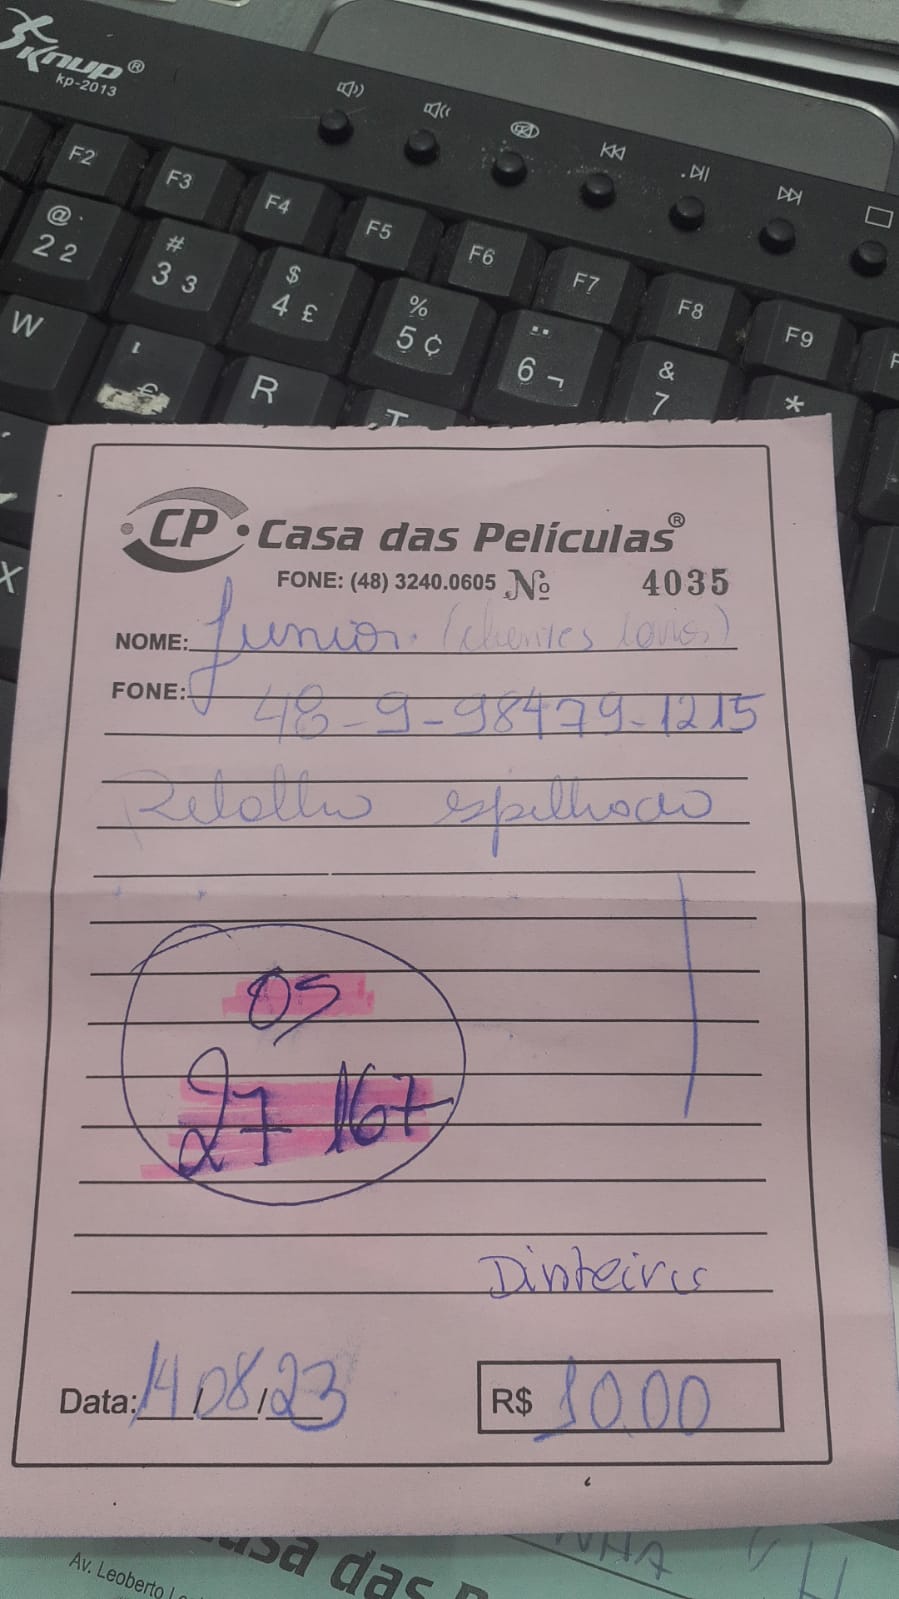 Knup®
kp-2013
F2 F3 F4 F5 F6 F7 F8 F9
@ # $ % ¨ & *
2 2 3 3 4 £ 5 ¢ 6 ¬ 7
W R T
X
CP Casa das Películas®
FONE: (48) 3240.0605 Nº 4035
NOME: Junior. (clientes
FONE:
48-9-98479-1215
Retalho espelhado
OS
27 167
Dinheiro
Data: 14/08/23 R$ 10.00
Casa das P
NHA
Av. Leoberto Le